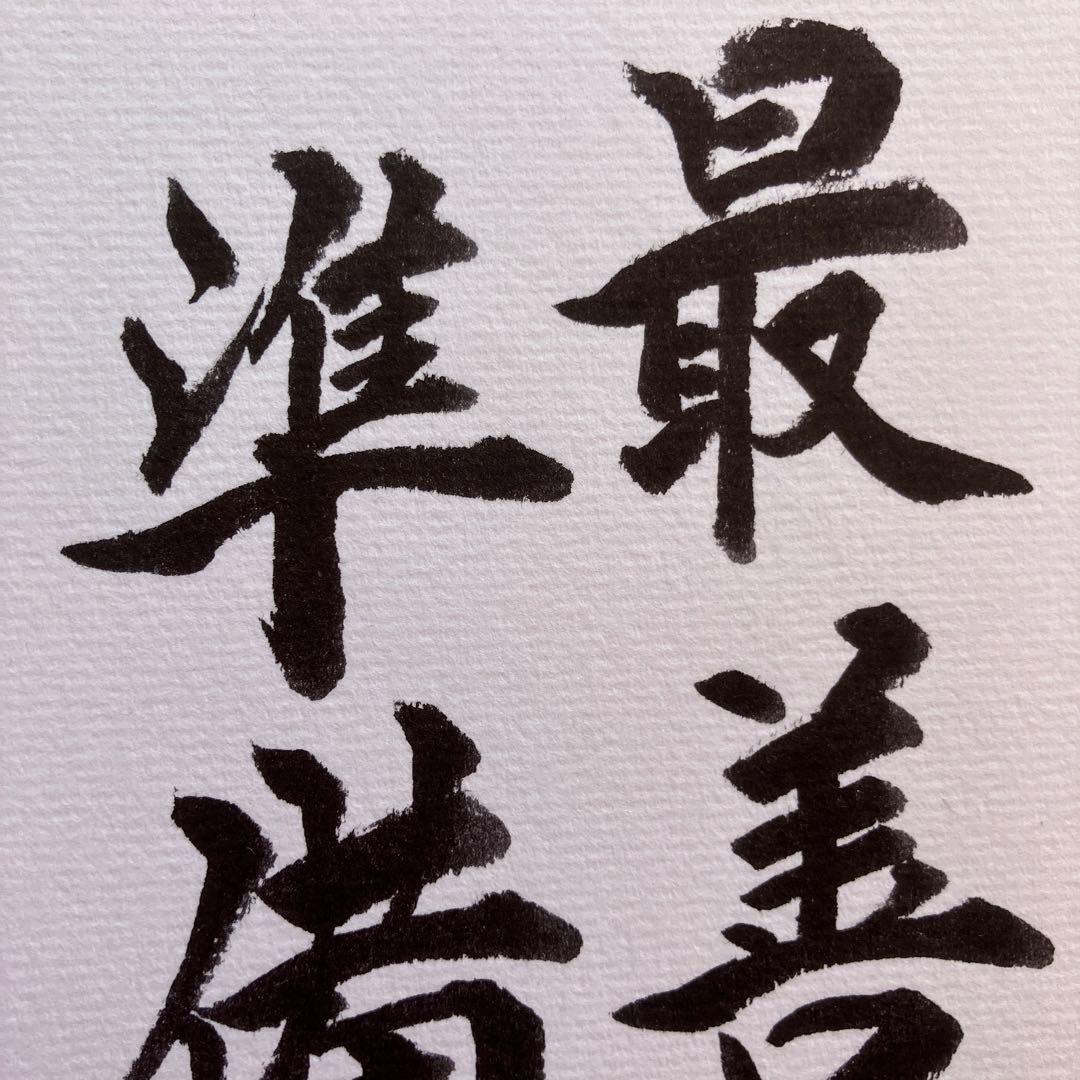 最善
準備